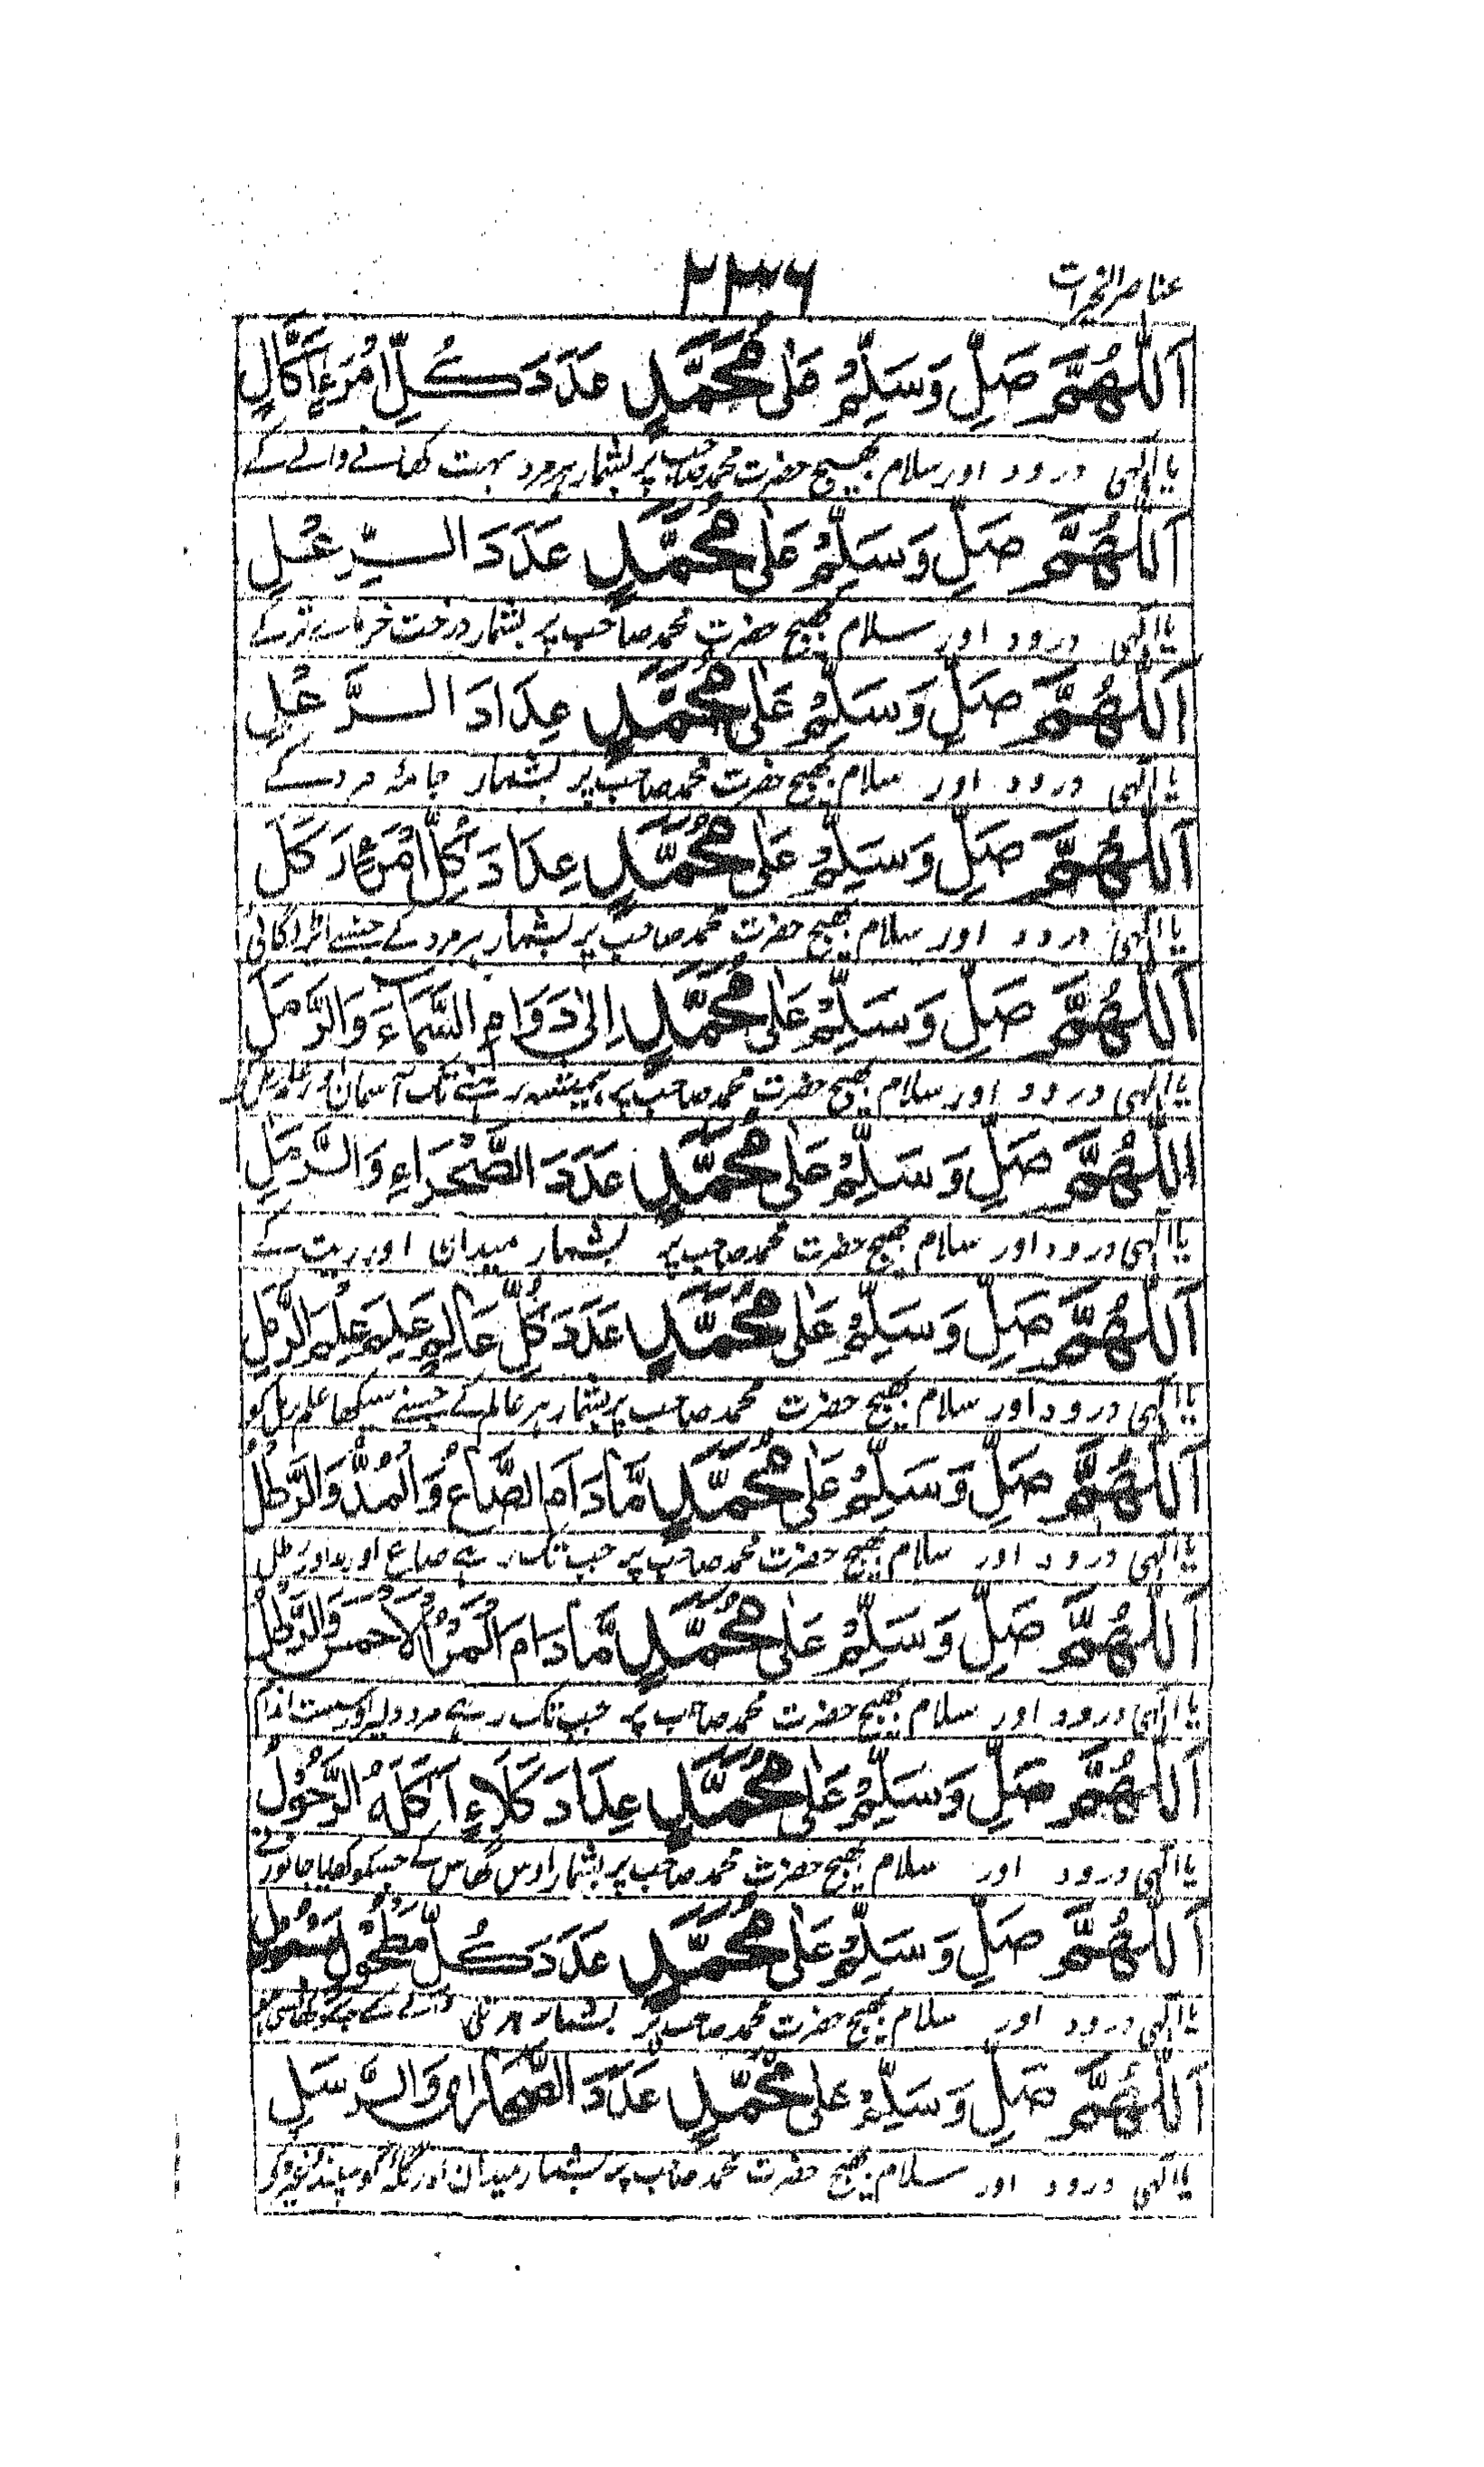 عناصر الخیرات
۲۳۶
اَللّٰهُمَّ صَلِّ وَسَلِّمْ عَلٰى مُحَمَّدٍ عَدَدَ كُلِّ امْرَءٍ اَكَّالٍ
یا الٰہی درود اور سلام بھیج حضرت محمد صاحب پر بشمار ہر مرد بہت کھانے والے کے
اَللّٰهُمَّ صَلِّ وَسَلِّمْ عَلٰى مُحَمَّدٍ عَدَدَ السِّرِّعْلِ
یا الٰہی درود اور سلام بھیج حضرت محمد صاحب پر بشمار درخت خرمائے نر کے
اَللّٰهُمَّ صَلِّ وَسَلِّمْ عَلٰى مُحَمَّدٍ عِدَادَ الرَّعْلِ
یا الٰہی درود اور سلام بھیج حضرت محمد صاحب پر بشمار جامۂ مرد کے
اَللّٰهُمَّ صَلِّ وَسَلِّمْ عَلٰى مُحَمَّدٍ عِدَادَ كُلِّ امْرَءٍ رَكَلَ
یا الٰہی درود اور سلام بھیج حضرت محمد صاحب پر بشمار ہر مرد کے جسنے
اَللّٰهُمَّ صَلِّ وَسَلِّمْ عَلٰى مُحَمَّدٍ اِلٰى دَوَامِ السَّمَآءِ وَالرَّمَلِ
یا الٰہی درود اور سلام بھیج حضرت محمد صاحب پر ہمیشہ رہنے تک آسمان اور
اَللّٰهُمَّ صَلِّ وَسَلِّمْ عَلٰى مُحَمَّدٍ عَدَدَ الصَّحْرَاءِ وَالرَّمَلِ
یا الٰہی درود اور سلام بھیج حضرت محمد صاحب پر بشمار میدان اور ریت کے
اَللّٰهُمَّ صَلِّ وَسَلِّمْ عَلٰى مُحَمَّدٍ عَدَدَ كُلِّ عَالِمٍ عَلِمَ عِلْمَ الرَّمَلِ
یا الٰہی درود اور سلام بھیج حضرت محمد صاحب پر بشمار ہر عالم کے جسنے سیکھا علم رمل کو
اَللّٰهُمَّ صَلِّ وَسَلِّمْ عَلٰى مُحَمَّدٍ مَّا دَامَ الصَّاعُ وَالْمُدُّ وَالرَّطْلُ
یا الٰہی درود اور سلام بھیج حضرت محمد صاحب پر جب تک رہے صاع اور مد اور رطل
اَللّٰهُمَّ صَلِّ وَسَلِّمْ عَلٰى مُحَمَّدٍ مَّا دَامَ الْمَرْءُ الْاَحْمَسُ وَالرَّطْلُ
یا الٰہی درود اور سلام بھیج حضرت محمد صاحب پر جب تک رہے مرد دلیر اور سست اندام
اَللّٰهُمَّ صَلِّ وَسَلِّمْ عَلٰى مُحَمَّدٍ عِدَادَ كَلَاءٍ اَكَلَهُ الرَّحُوْلُ
یا الٰہی درود اور سلام بھیج حضرت محمد صاحب پر بشمار اوس گھاس کے جسکو کھایا جانور نے
اَللّٰهُمَّ صَلِّ وَسَلِّمْ عَلٰى مُحَمَّدٍ عَدَدَ كُلِّ مَطْحُوْلٍ
یا الٰہی درود اور سلام بھیج حضرت محمد صاحب پر بشمار ہر تلی والے کے
اَللّٰهُمَّ صَلِّ وَسَلِّمْ عَلٰى مُحَمَّدٍ عَدَدَ الصَّحَارٰى وَالرَّسَلِ
یا الٰہی درود اور سلام بھیج حضرت محمد صاحب پر بشمار میدان اور گلہ